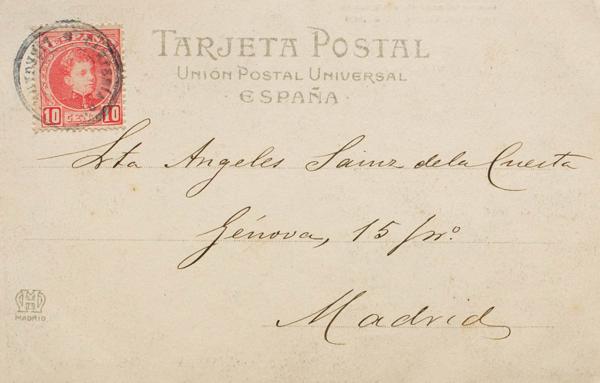 TARJETA POSTAL
UNIÓN POSTAL UNIVERSAL
· ESPAÑA ·
10 10
Srta Angeles Sainz de la Cuesta
Génova, 15 pr.º
Madrid
MADRID